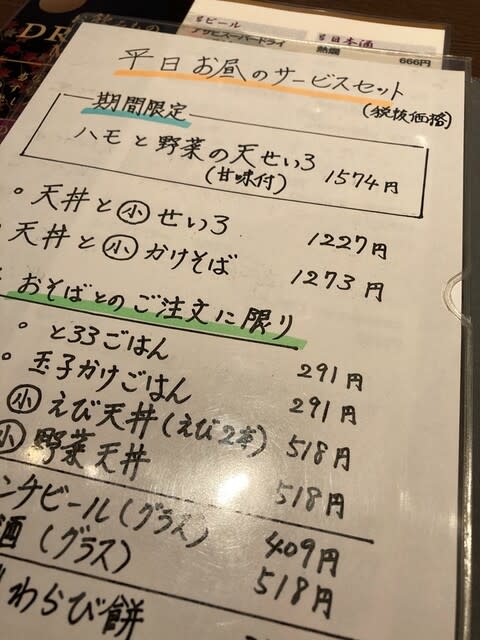 DR
ビール
アサヒスーパードライ
日本酒
熱燗 666円
平日 お昼のサービスセット
(税抜価格)
期間限定
ハモと野菜の天せいろ 1574円
(甘味付)
天丼と小せいろ 1227円
天丼と小かけそば 1273円
おそばとのご注文に限り
とろろごはん 291円
玉子かけごはん 291円
小えび天丼(えび2本) 518円
小野菜天丼 518円
ンチビール(グラス) 409円
酒(グラス) 518円
わらび餅